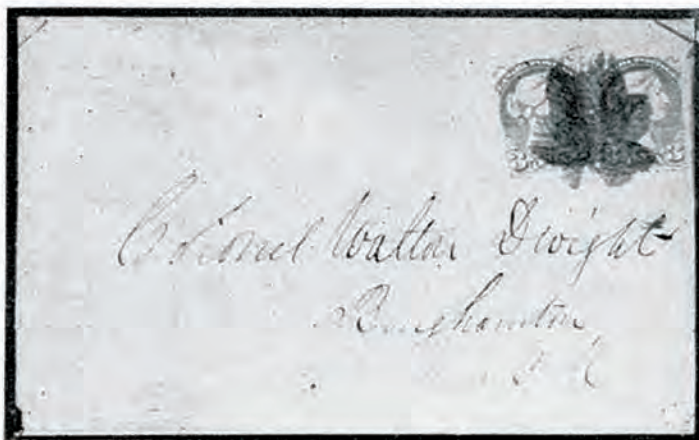 Colonel Walton Dwight
Binghamton